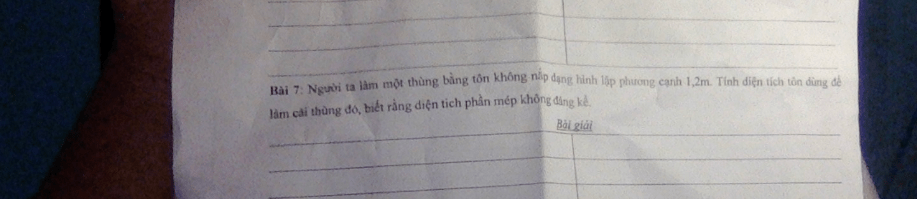 Bài 7: Người ta làm một thùng bằng tôn không nắp dạng hình lập phương cạnh 1,2m. Tính diện tích tôn dùng để
làm cái thùng đó, biết rằng diện tích phần mép không đáng kể.
Bài giải